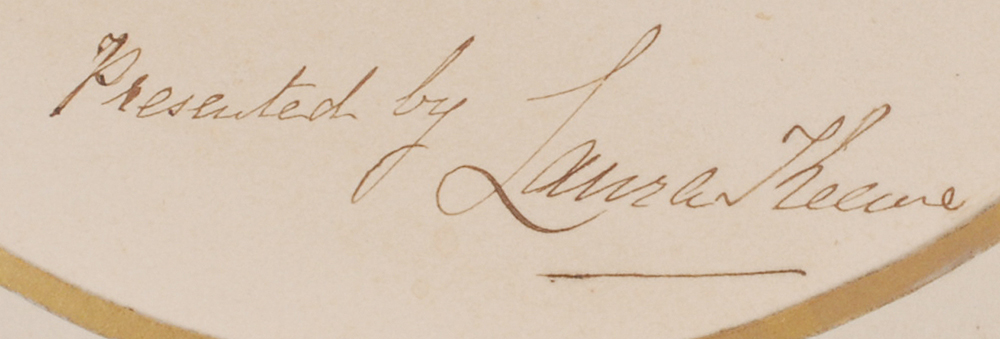 Presented by Laura Keene